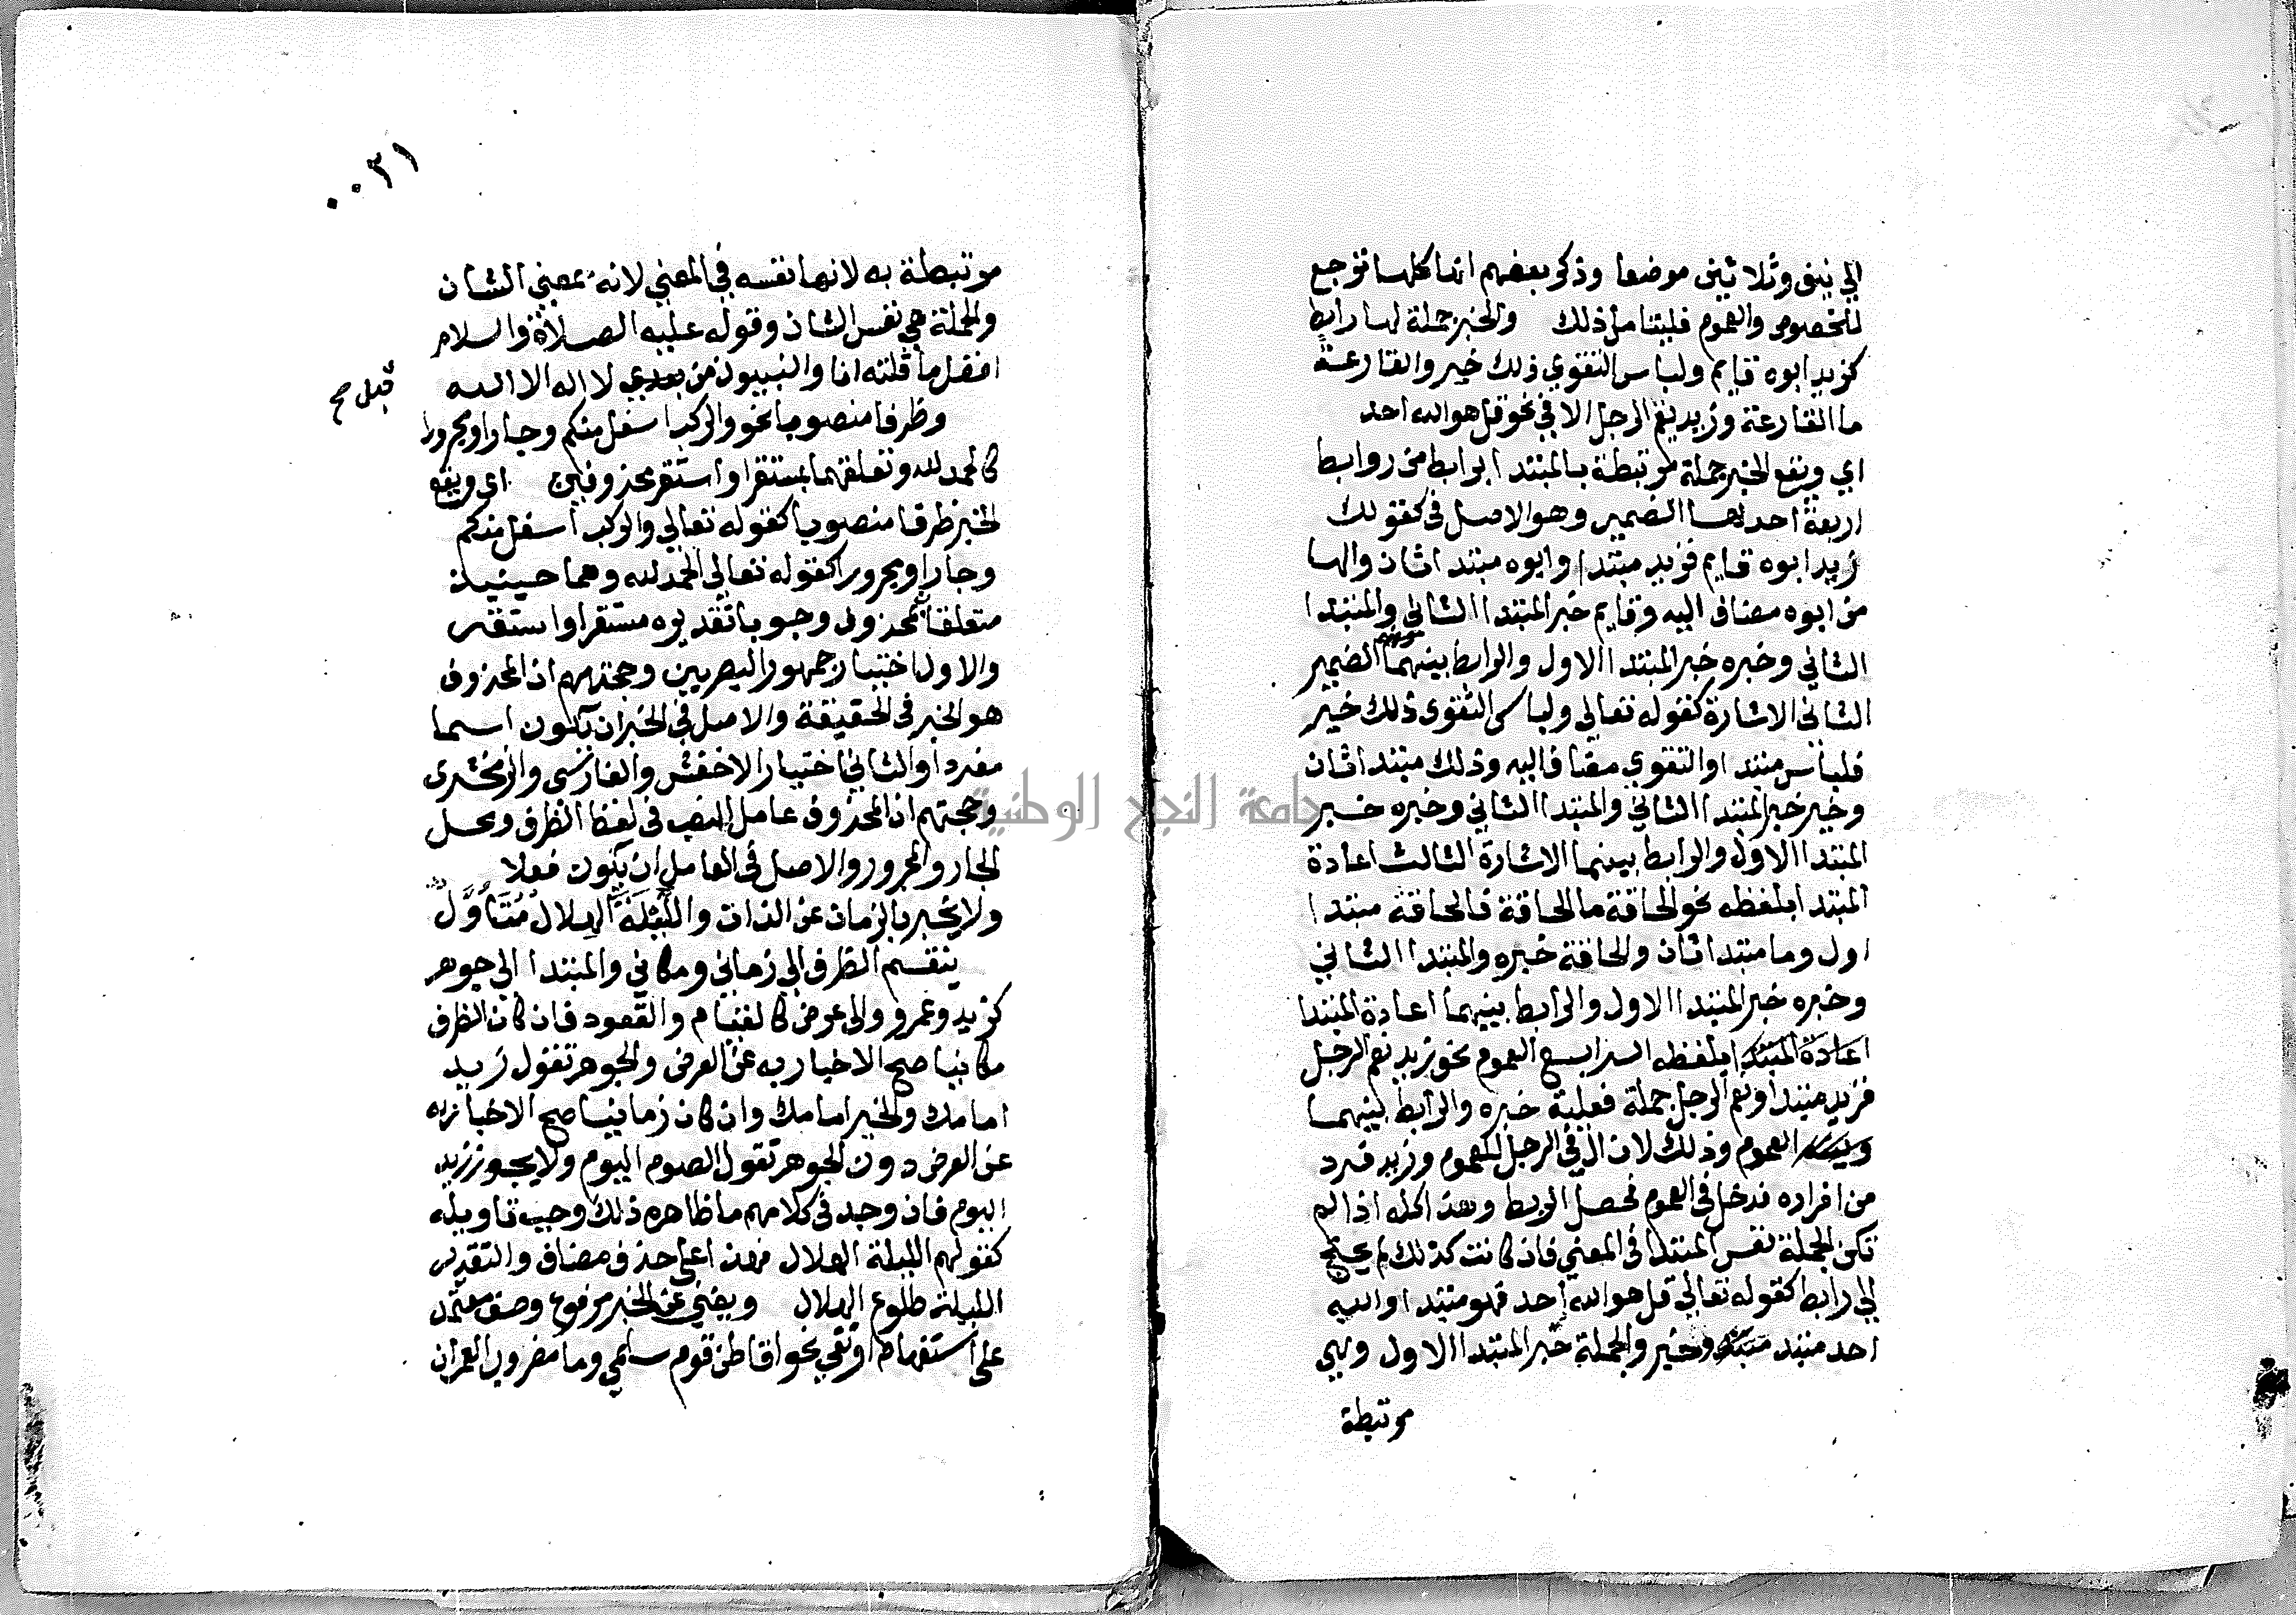 الي نيف وثلاثين موضعا وذكر بعضهم انها كلها ترجع
للخصوص والعموم فليتامل ذلك والخبر جملة لها رابط
كزيد ابوه قايم ولباس التقوي ذلك خير والقارعة
ما القارعة وزيد نعم الرجل الا في نحو قل هو الله احد
اي ويقع الخبر جملة مرتبطة بالمبتدا برابط من روابط
اربعة احدها الضمير وهو الاصل في كقولك
زيد ابوه قايم فزيد مبتدا وابوه مبتدا ثان والها
من ابوه مضاف اليه وقايم خبر المبتدا الثاني والمبتدا
الثاني وخبره خبر المبتدا الاول والرابط بينهما الضمير
الثاني الاشارة كقوله تعالي ولباس التقوى ذلك خير
فلباس مبتدا والتقوي مضاف اليه وذلك مبتدا ثان
وخير خبر المبتدا الثاني والمبتدا الثاني وخبره خبر
المبتدا الاول والرابط بينهما الاشارة الثالث اعادة
المبتدا بلفظه نحو الحاقة ما الحاقة فالحاقة مبتدا
اول وما مبتدا ثان والحاقة خبره والمبتدا الثاني
وخبره خبر المبتدا الاول والرابط بينهما اعادة المبتدا
اعادة المبتدا بلفظه الرابع العموم نحو زيد نعم الرجل
فزيد مبتدا ونعم الرجل جملة فعلية خبره والرابط بينهما
العموم وذلك لان ال في الرجل للعموم وزيد فرد
من افراده فدخل في العموم فحصل الربط وهذا كله اذا لم
تكن الجملة نفس المبتدا في المعني فان كانت كذلك لم يحتج
الي رابط كقوله تعالي قل هو الله احد فهو مبتدا والله
احد مبتدا وخبر والجملة خبر المبتدا الاول وهي
مرتبطة
٠٠٣١
مرتبطة به لانها نفسه في المعني لانه بمعني الشان
والجملة هي نفس الشان وقوله عليه الصلاة والسلام
افضل ما قلته انا والنبيون من بعدي لا اله الا الله
قبلي صح
وظرفا منصوبا نحو والركب اسفل منكم وجارا ومجرورا
كالحمد لله وتعلقهما بمستقر او استقر محذوفين اي ويقع
الخبر ظرفا منصوبا كقوله تعالي والركب اسفل منكم
وجارا ومجرورا كقوله تعالي الحمد لله وهما حينيذ
متعلقان بمحذوف وجوبا تقديره مستقر او استقر
والاول اختيار جمهور البصريين وحجتهم ان المحذوف
هو الخبر في الحقيقة والاصل في الخبر ان يكون اسما
مفردا والثاني اختيار الاخفش والفارسي والزمخشري
وحجتهم ان المحذوف عامل النصب في لفظ الظرف ومحل
الجار والمجرور والاصل في العامل ان يكون فعلا
ولا يخبر بالزمان عن الذات والليلةَ الهلال مُتَأَوَّلٌ
ينقسم الظرف الي زماني ومكاني والمبتدا الي جوهر
كزيد وعمرو والى عرض كالقيام والقعود فان كان الظرف
مكانيا صح الاخبار به عن العرض والجوهر تقول زيد
امامك والخير امامك وان كان زمانيا صح الاخبار به
عن العرض دون الجوهر تقول الصوم اليوم ولا يجوز زيد
اليوم فان وجد في كلامهم ما ظاهره ذلك وجب تاويله
كقولهم الليلة الهلال فهذا علي حذف مضاف والتقدير
الليلة طلوع الهلال ويغني عن الخبر مرفوع وصف معتمد
على استفهام او نفي نحو اقاطن قوم سلمي وما مضروب العمران
جامعة النجاح الوطنية